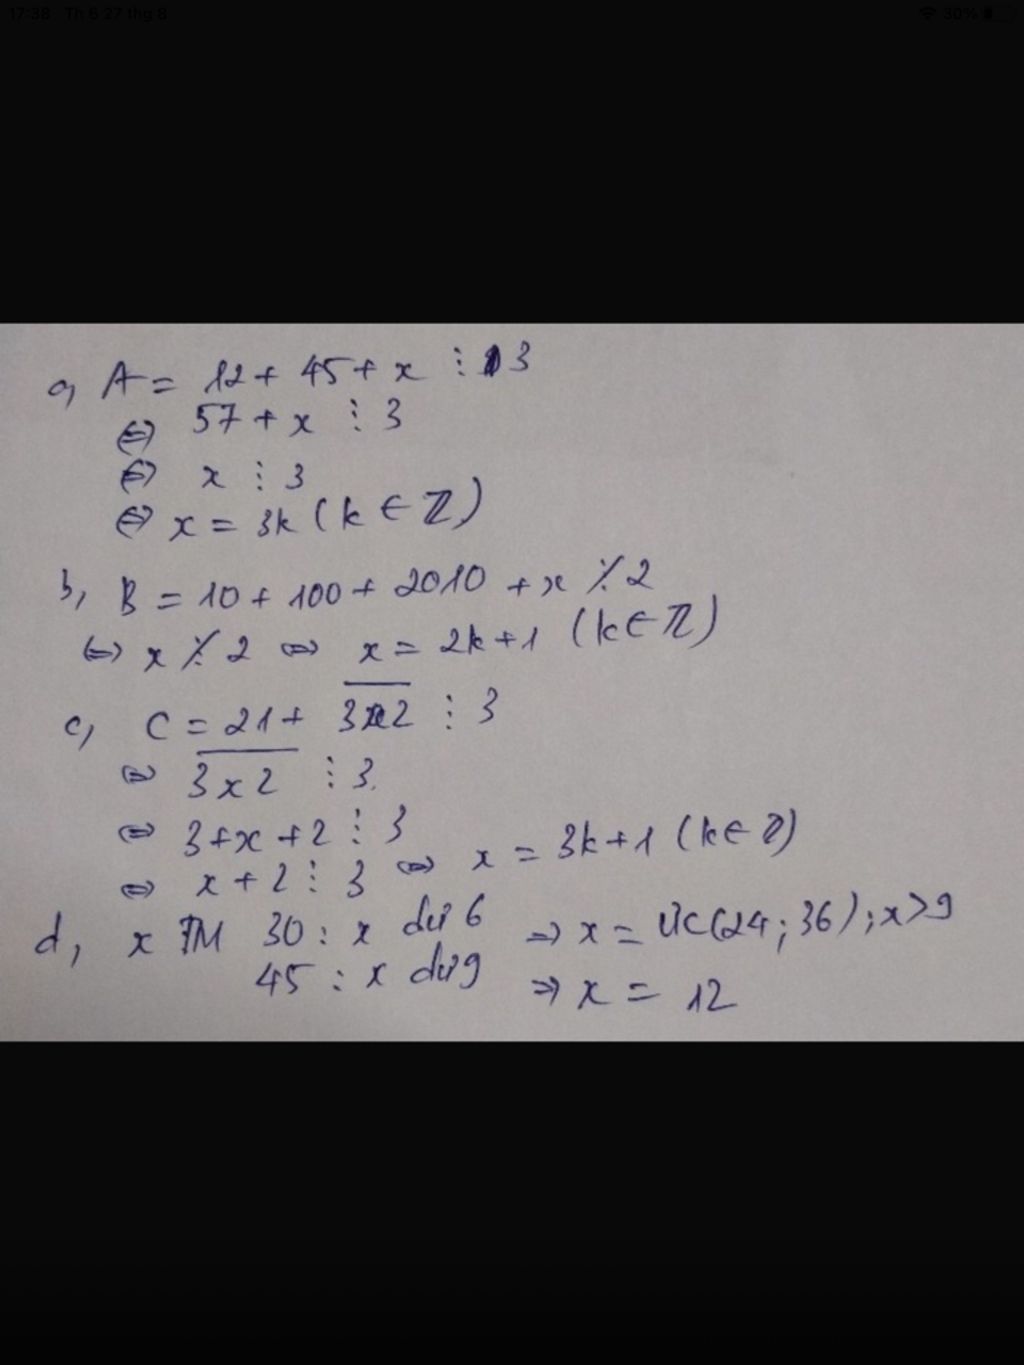 17:38 Th 6 27 thg 8
30%
a, A = 12 + 45 + x ⋮ 3
⇔ 57 + x ⋮ 3
⇔ x ⋮ 3
⇔ x = 3k (k ∈ ℤ)
b, B = 10 + 100 + 2010 + x ⋮̸ 2
⇔ x ⋮̸ 2 ⇔ x = 2k + 1 (k ∈ ℤ)
c, C = 21 + 3x2 ⋮ 3
⇔ 3x2 ⋮ 3.
⇔ 3 + x + 2 ⋮ 3
⇔ x + 2 ⋮ 3 ⇔ x = 3k + 1 (k ∈ ℤ)
d, x TM 30 : x dư 6 ⇒ x = ƯC(24; 36); x > 9
45 : x dư 9 ⇒ x = 12